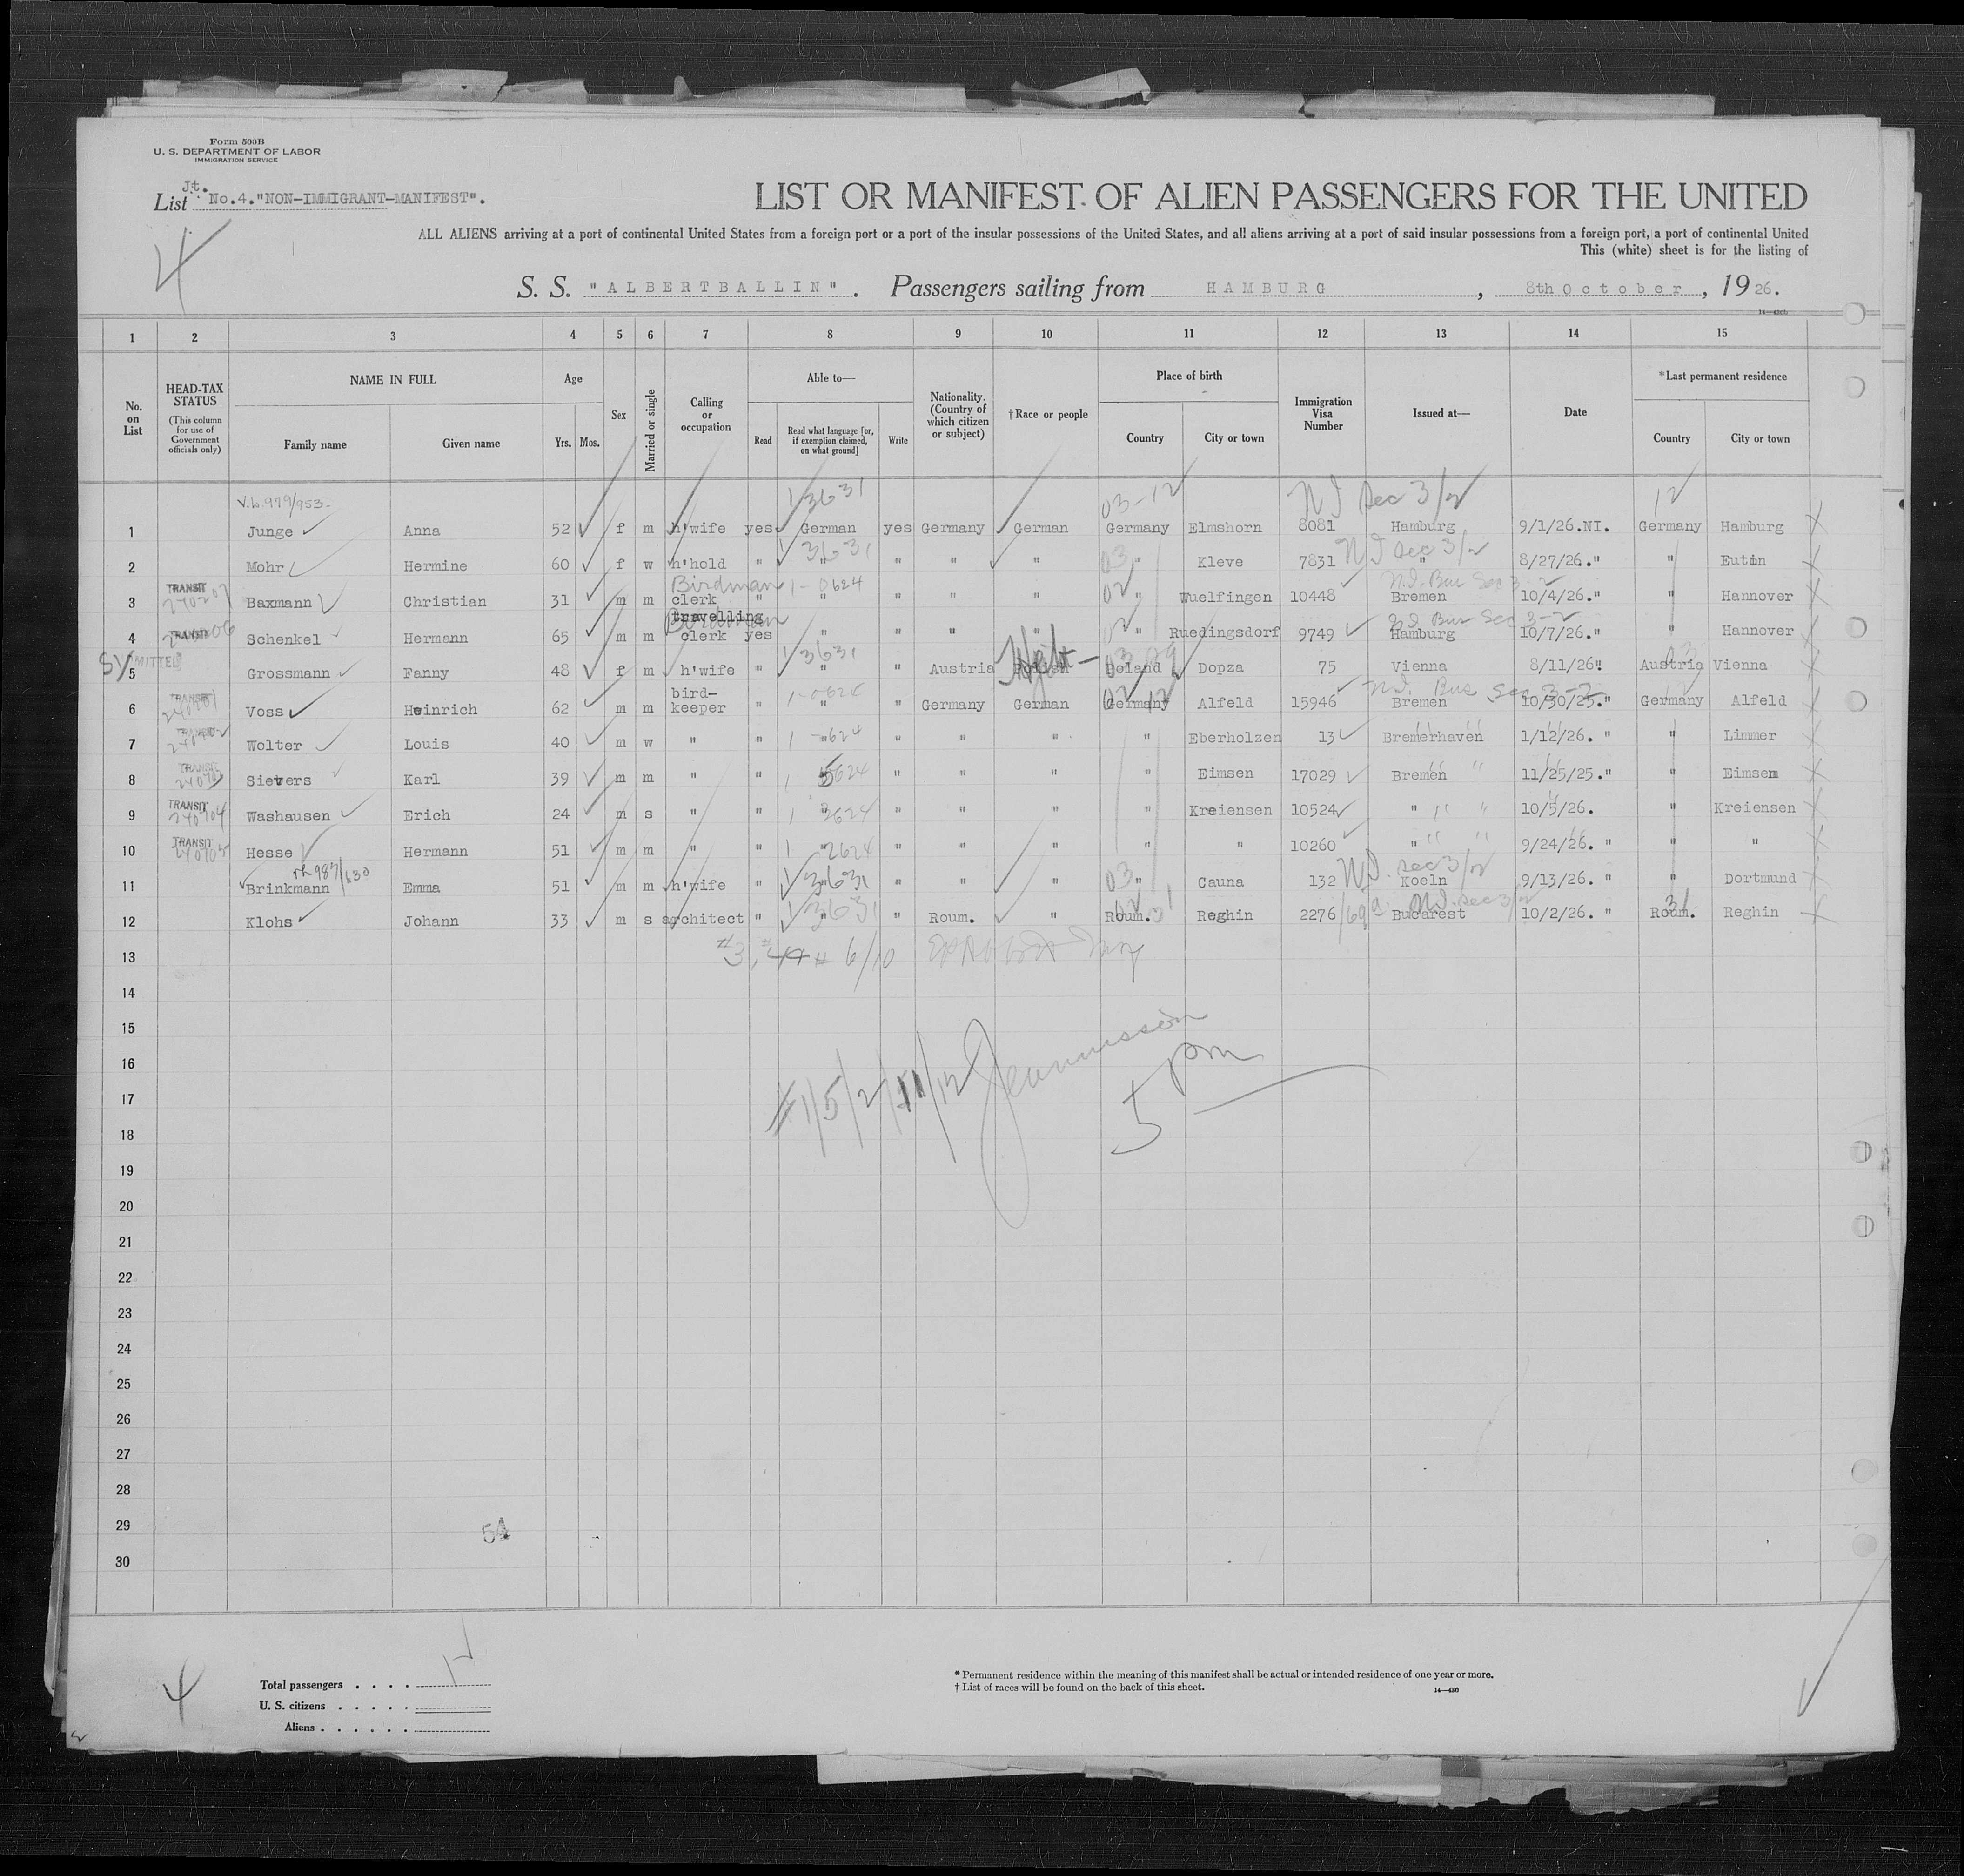 Form 500B
U. S. DEPARTMENT OF LABOR
IMMIGRATION SERVICE
Jt.
List No.4."NON-IMMIGRANT-MANIFEST".
LIST OR MANIFEST OF ALIEN PASSENGERS FOR THE UNITED
4
ALL ALIENS arriving at a port of continental United States from a foreign port or a port of the insular possessions of the United States, and all aliens arriving at a port of said insular possessions from a foreign port, a port of continental United
This (white) sheet is for the listing of
S. S. "ALBERTBALLIN". Passengers sailing from HAMBURG, 8th October, 1926.
1 2 3 4 5 6 7 8 9 10 11 12 13 14 15
No. on List
HEAD-TAX STATUS
(This column for use of Government officials only)
NAME IN FULL
Family name Given name
Age
Yrs. Mos.
Sex
Married or single
Calling or occupation
Able to—
Read Read what language [or, if exemption claimed, on what ground] Write
Nationality. (Country of which citizen or subject)
†Race or people
Place of birth
Country City or town
Immigration Visa Number
Issued at—
Date
*Last permanent residence
Country City or town
V.L.979/953 1/3631 03-12 NI Sec 3/2 12
1 Junge Anna 52 f m h'wife yes German yes Germany German Germany Elmshorn 8081 Hamburg 9/1/26.NI. Germany Hamburg
3631 03 NI Sec 3/2
2 Mohr Hermine 60 f w h'hold " " " " " " Kleve 7831 " 8/27/26." " Eutin
TRANSIT Birdman 1-0624 02 N.I. Bus Sec 3-2
3 Baxmann Christian 31 m m clerk " " " " " " Wuelfingen 10448 Bremen 10/4/26." " Hannover
TRANSIT travelling Birdman NI Bus Sec 3-2
4 Schenkel Hermann 65 m m clerk yes " " " " " Ruedingsdorf 9749 Hamburg 10/7/26." " Hannover
3631
5 Grossmann Fanny 48 f m h'wife " " " Austria Polish Poland Dopza 75 Vienna 8/11/26" Austria Vienna
TRANSIT 1-0624 02 12 N.I. Bus Sec 3-2
6 Voss Heinrich 62 m m bird-keeper " " " Germany German Germany Alfeld 15946 Bremen 10/30/25." Germany Alfeld
7 Wolter Louis 40 m w " " " " " " " Eberholzen 13 Bremerhaven 1/12/26. " " Limmer
TRANSIT
8 Sievers Karl 39 m m " " " " " " Eimsen 17029 Bremen 11/25/25." " Eimsen
TRANSIT 240704
9 Washausen Erich 24 m s " " " " " " " Kreiensen 10524 " 10/5/26. " Kreiensen
TRANSIT 240705
10 Hesse Hermann 51 m m " " " " " " " " 10260 " 9/24/26. " " "
3631 03 NI Sec 3/2
11 Brinkmann Emma 51 m m h'wife " " " " " " Cauna 132 Koeln 9/13/26. " " Dortmund
3631 NI Sec 3/2
12 Klohs Johann 33 m s architect " " " Roum. " Roum. Reghin 2276 Bucarest 10/2/26. " Roum. Reghin
13
14
15
16
17 #1/5/2/11/12 5 pm
18
19
20
21
22
23
24
25
26
27
28
29 54
30
4
Total passengers . . . . 12
U. S. citizens . . . . .
Aliens . . . . . .
* Permanent residence within the meaning of this manifest shall be actual or intended residence of one year or more.
† List of races will be found on the back of this sheet.
14—430